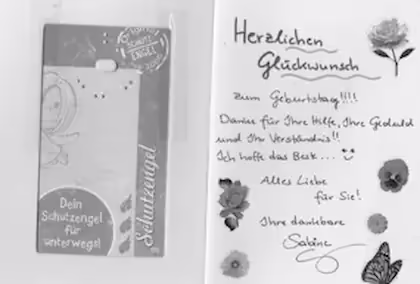 SCHUTZ
ENGEL
Schutzengel
Dein
Schutzengel
für
unterwegs!
Herzlichen
Glückwunsch
zum Geburtstag!!!!
Danke für Ihre Hilfe, Ihre Geduld
und Ihr Verständnis!!
Ich hoffe das Beste...
Alles Liebe
für Sie!
Ihre dankbare
Sabine